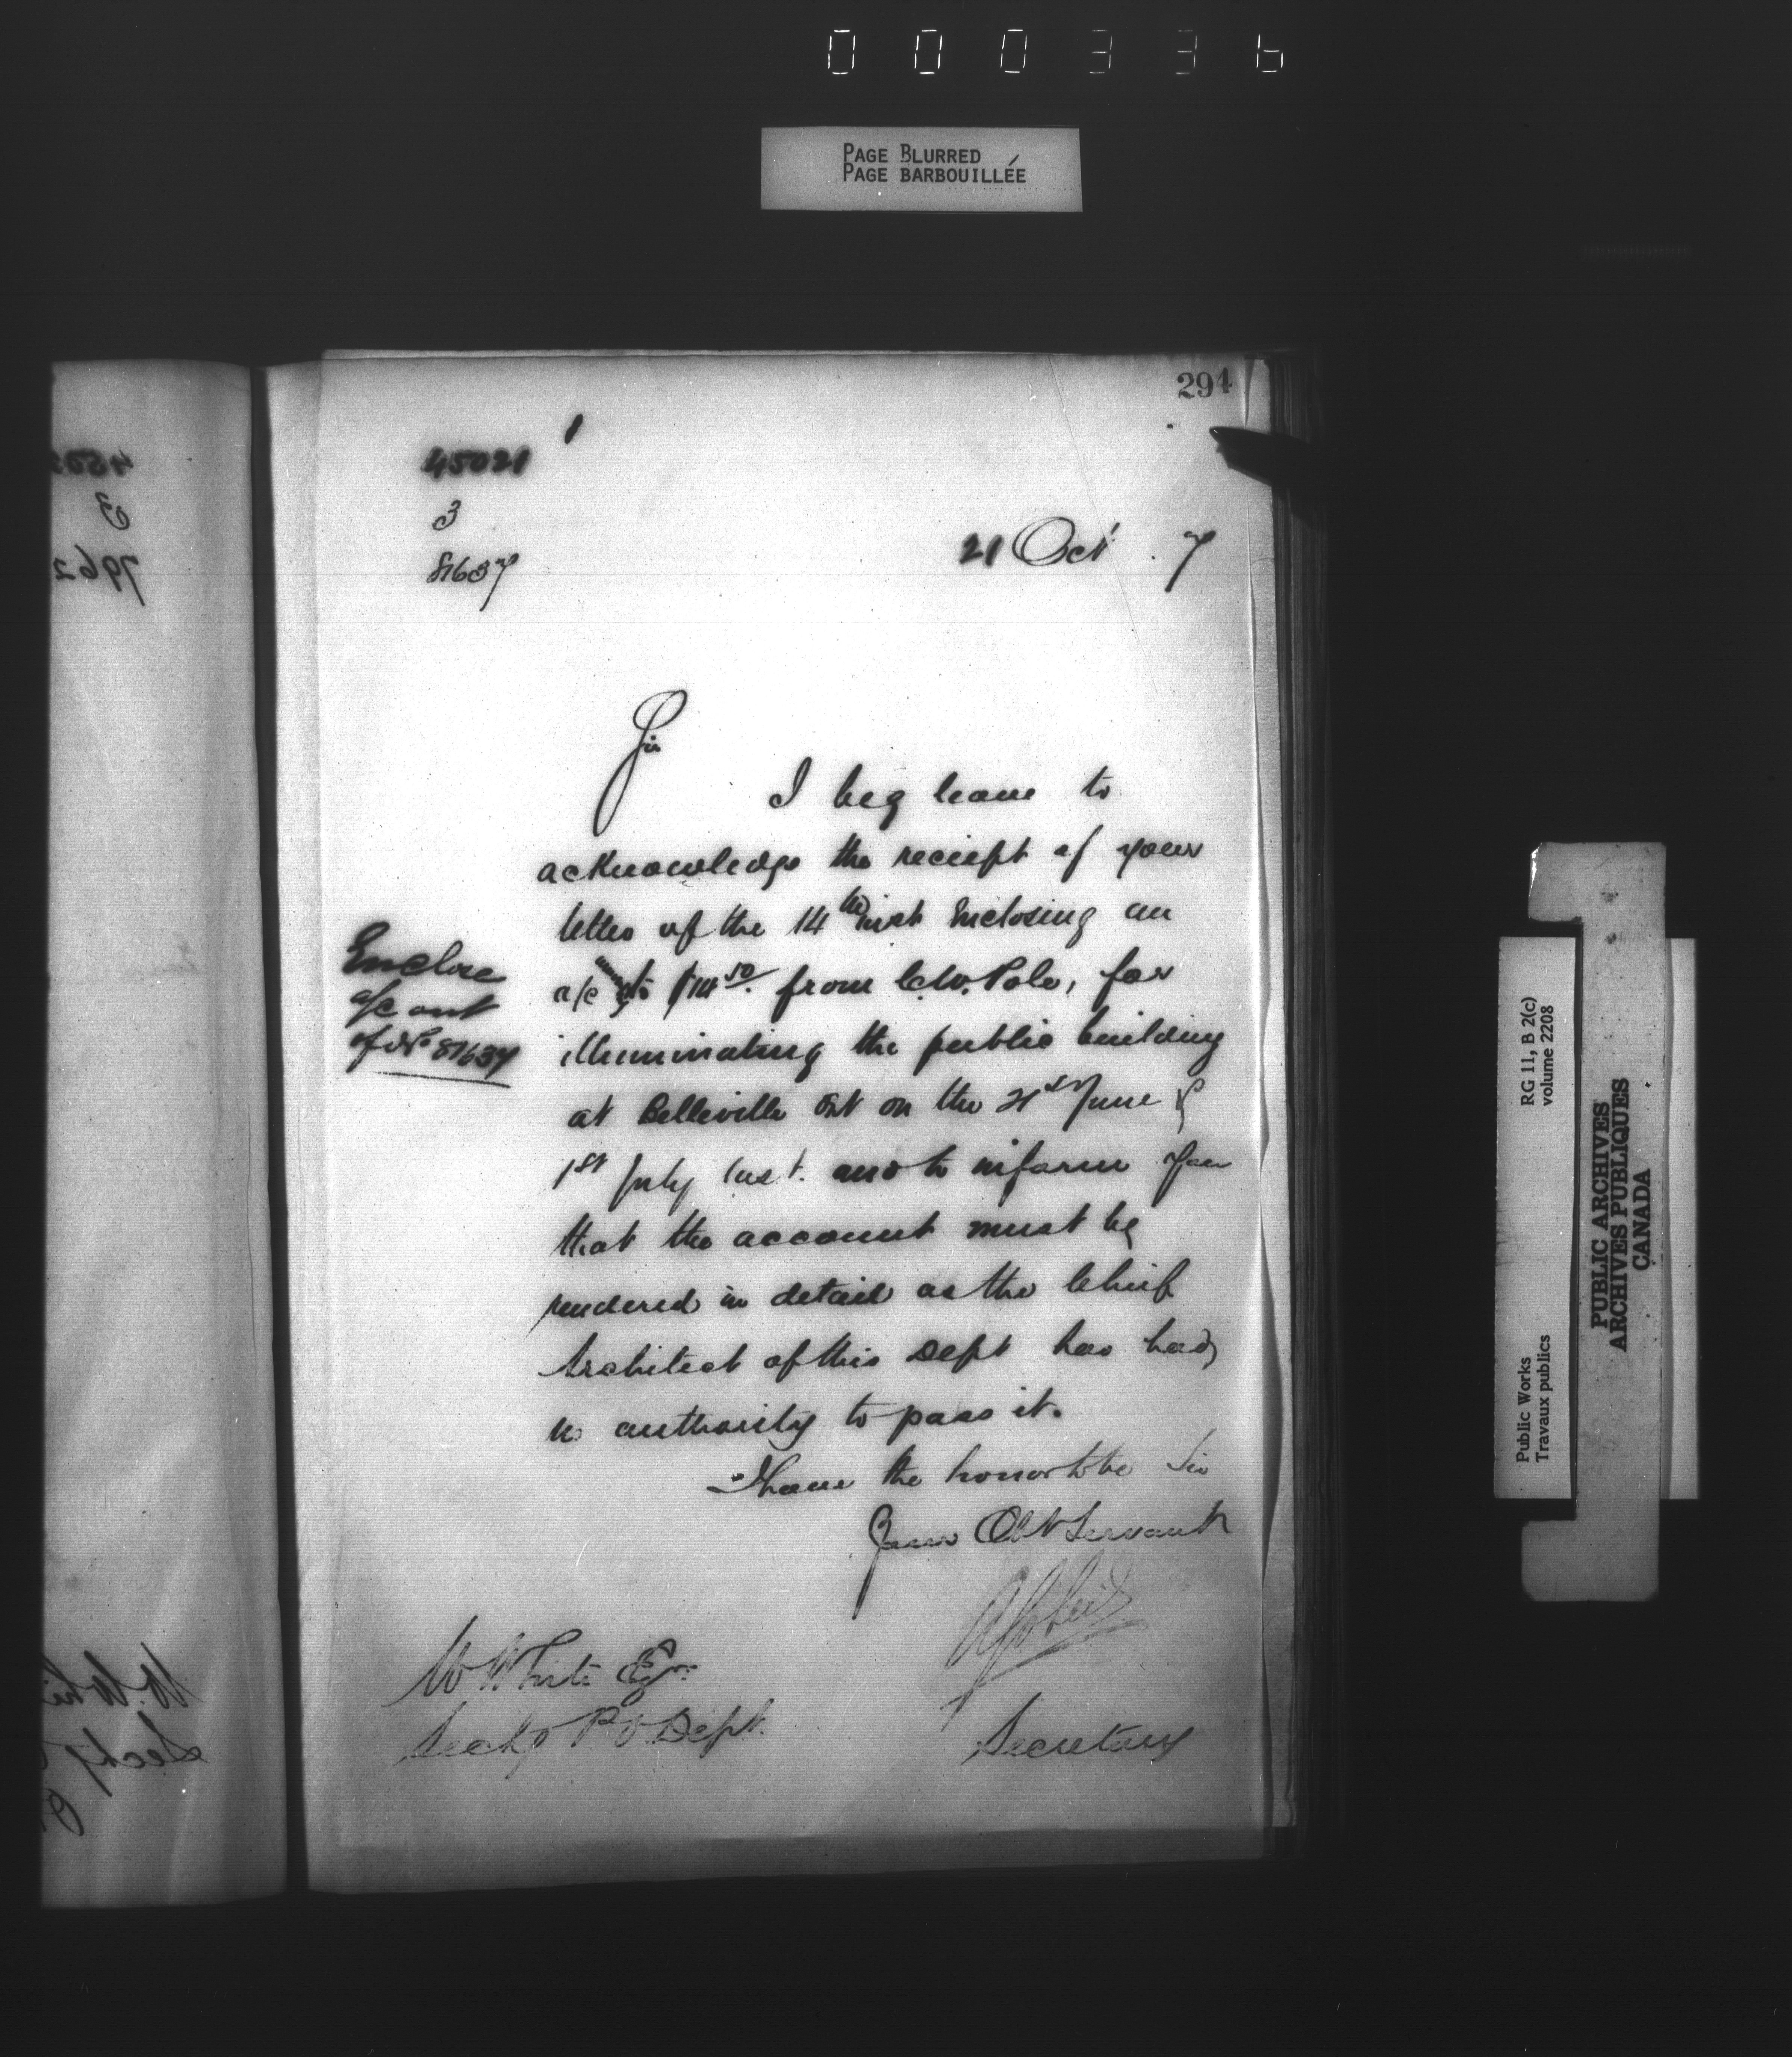 000336
PAGE BLURRED
PAGE BARBOUILLÉE
294
45021
3
81637
21 Oct 7
Sir
I beg leave to
acknowledge the reciept of your
letter of the 14th inst Enclosing an
a/c $14.50 from C.W. Pole, for
illuminating the public building
at Belleville Ont on the 21st June &
1st July last. and to inform you
that the account must be
rendered in detail as the Chief
Architect of this Dept has had
no authority to pass it.
I have the honor to be Sir
Your Obt Servant
Secretary
W White Esqr
Secty P O Dept.
Enclose
a/c out
of No 81637
RG 11, B 2(c)
volume 2208
Public Works
Travaux publics
PUBLIC ARCHIVES
ARCHIVES PUBLIQUES
CANADA